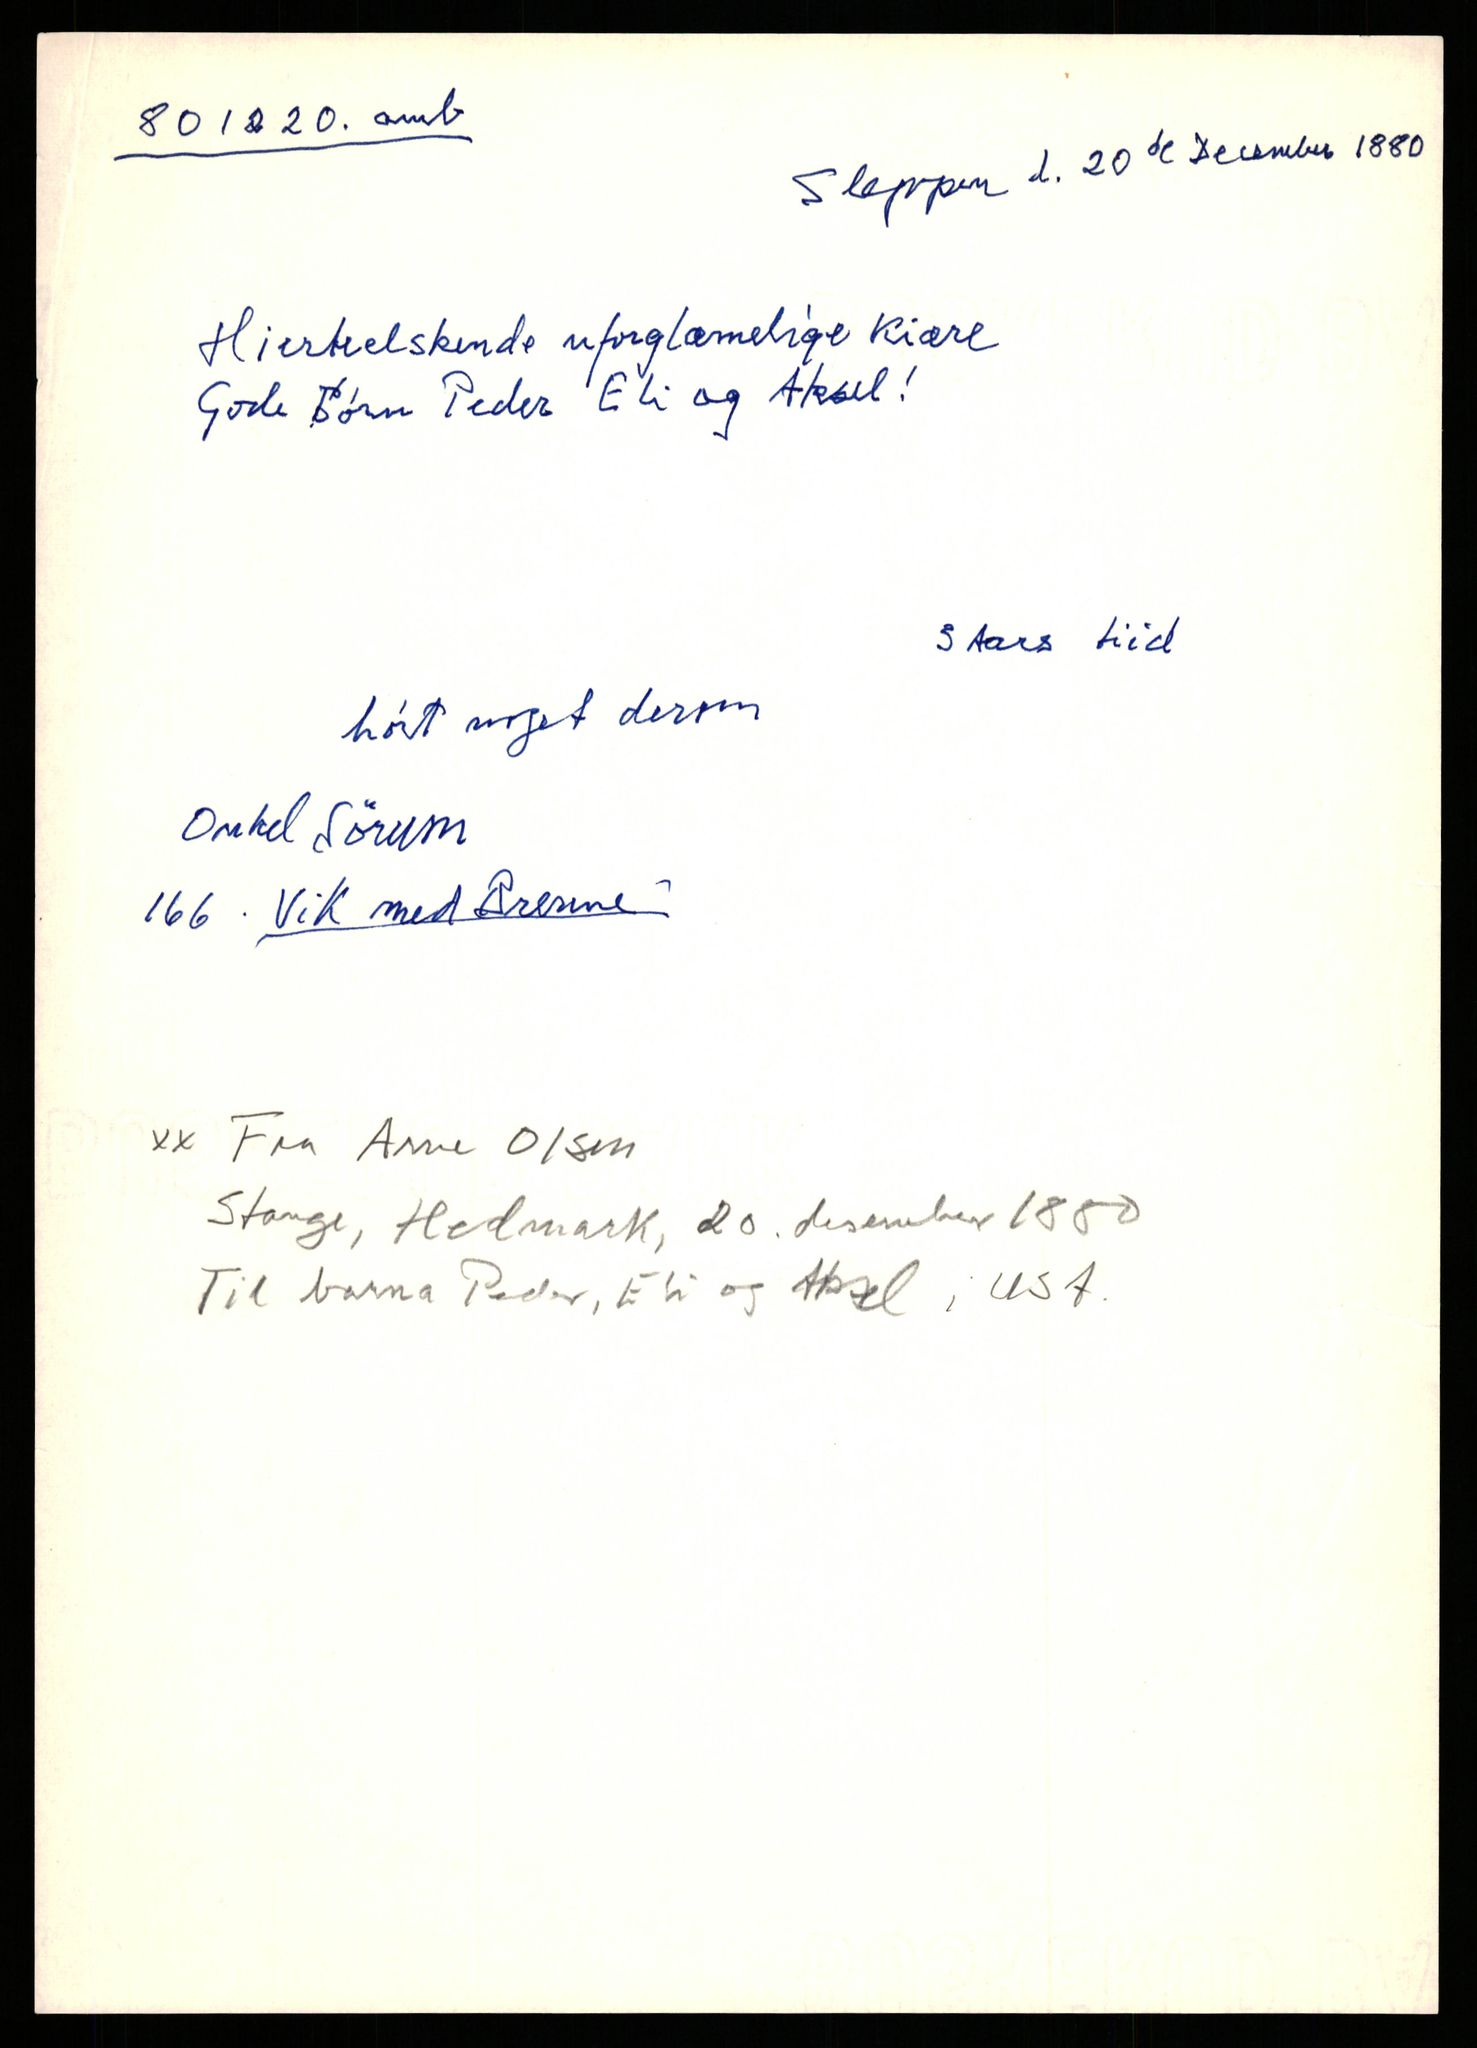 801220. amb
Sleppen d. 20de December 1880
Hierteelskende uforglæmelige Kiære
Gode Børn Peder Eli og Aksel!
3 Aars tiid
hört noget derom
Onkel Sörum
166. Vik med Brenne
xx Fra Arne Olsen
Stange, Hedmark, 20. desember 1880
Til barna Peder, Eli og Aksel i USA.